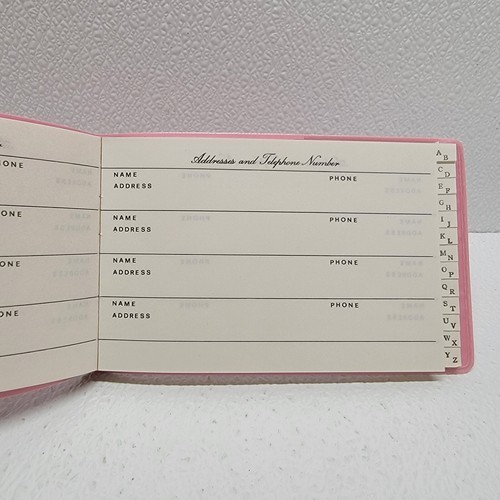 HONE
HONE
ONE
HONE
Addresses and Telephone Number
NAME PHONE
ADDRESS
NAME PHONE
ADDRESS
NAME PHONE
ADDRESS
NAME PHONE
ADDRESS
A B
C D
E F
G H
I J
K L
M N
O P
Q R
S T
U V
W X
Y Z